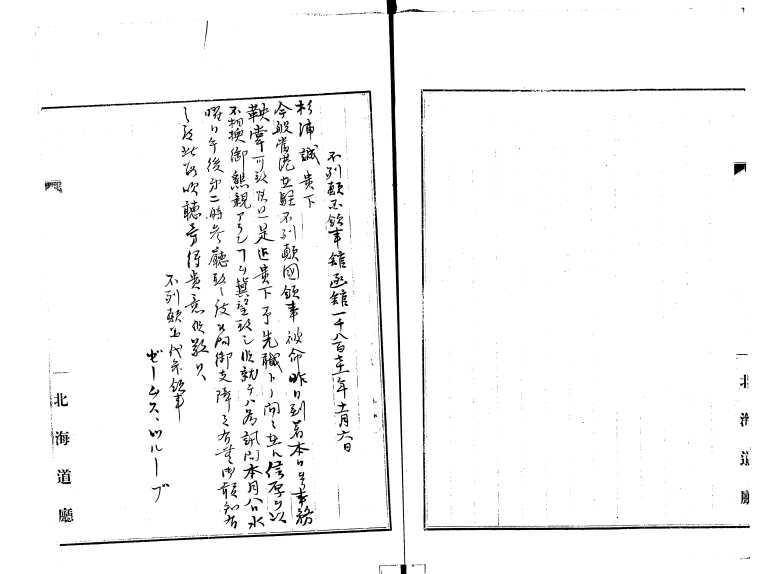 不列顛国領事館函館一千八百七十一年十一月六日
杉浦誠貴下
今般当港在駐不列顛国領事被命昨日到着本日ヨリ事務
鞅掌可致候且是迄貴下予先職トノ間ニ在ル信厚ヲ以
不相換御懇親アランヿヲ冀望致シ候就テハ為訊問本月八日水
曜日午後第二時参庁致シ度候間御支障之有無御報知有
之度此段
不列顛国代弁領事
ゼームス・ツループ
北海道廳
北海道廳